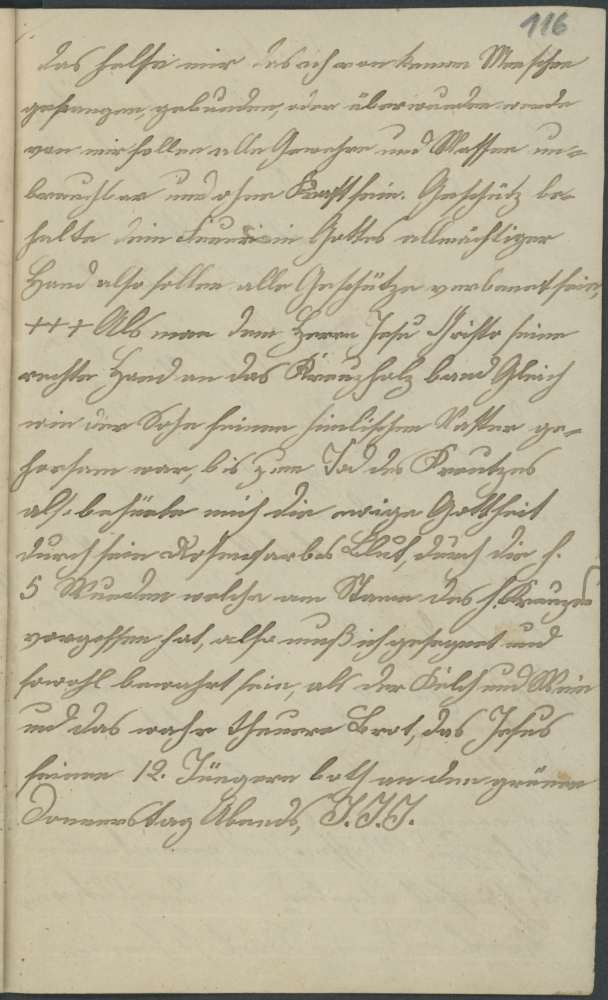 116
das helfe mir das ich von keinen Menschen
gefangen, gebunden, oder überwunden werde
von mir sollen alle Gewehre und Waffen un-
brauchbar und ohne Kraft sein. Geschütz be-
halte dein Feuer in Gottes allmächtiger
Hand also sollen alle Geschütze verbannt sein,
+++ Als man dem Herrn Jesu Christo seine
rechte Hand an das Kreuzholz band Gleich
wie der Sohn seinen himlischen Vatter ge-
horsam war, bis zum Tod des Kreutzes
also behüte mich die ewige Gottheit
durch sein Rosenfarbes Blut, durch die h.
5 Wunden welche am Stame des h. Kreuzes
vergossen hat, also muß ich gesegnet und
sowohl bewahrt sein, als der Kelch und Wein
und das wahr theuere Brot, das Jesus
seinen 12. Jüngern both an den grünen
Donnerstag Abends, J.J.J.